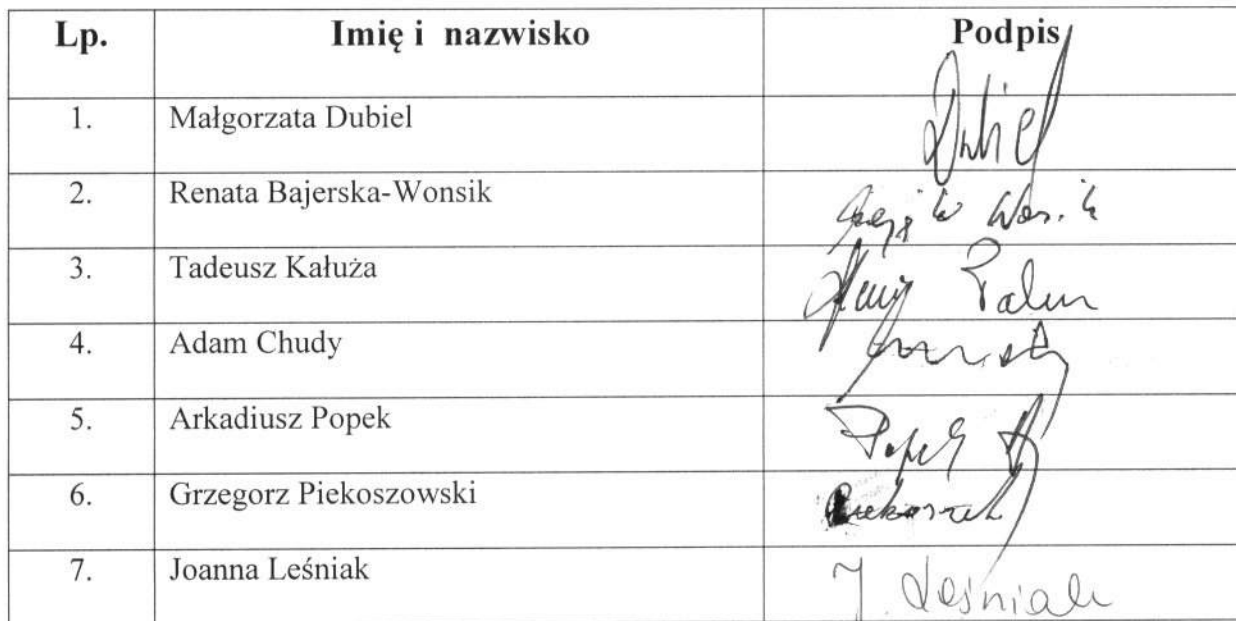 Lp. Imię i nazwisko Podpis
1. Małgorzata Dubiel Dubiel
2. Renata Bajerska-Wonsik
3. Tadeusz Kałuża
4. Adam Chudy
5. Arkadiusz Popek Popek
6. Grzegorz Piekoszowski
7. Joanna Leśniak J. Leśniak